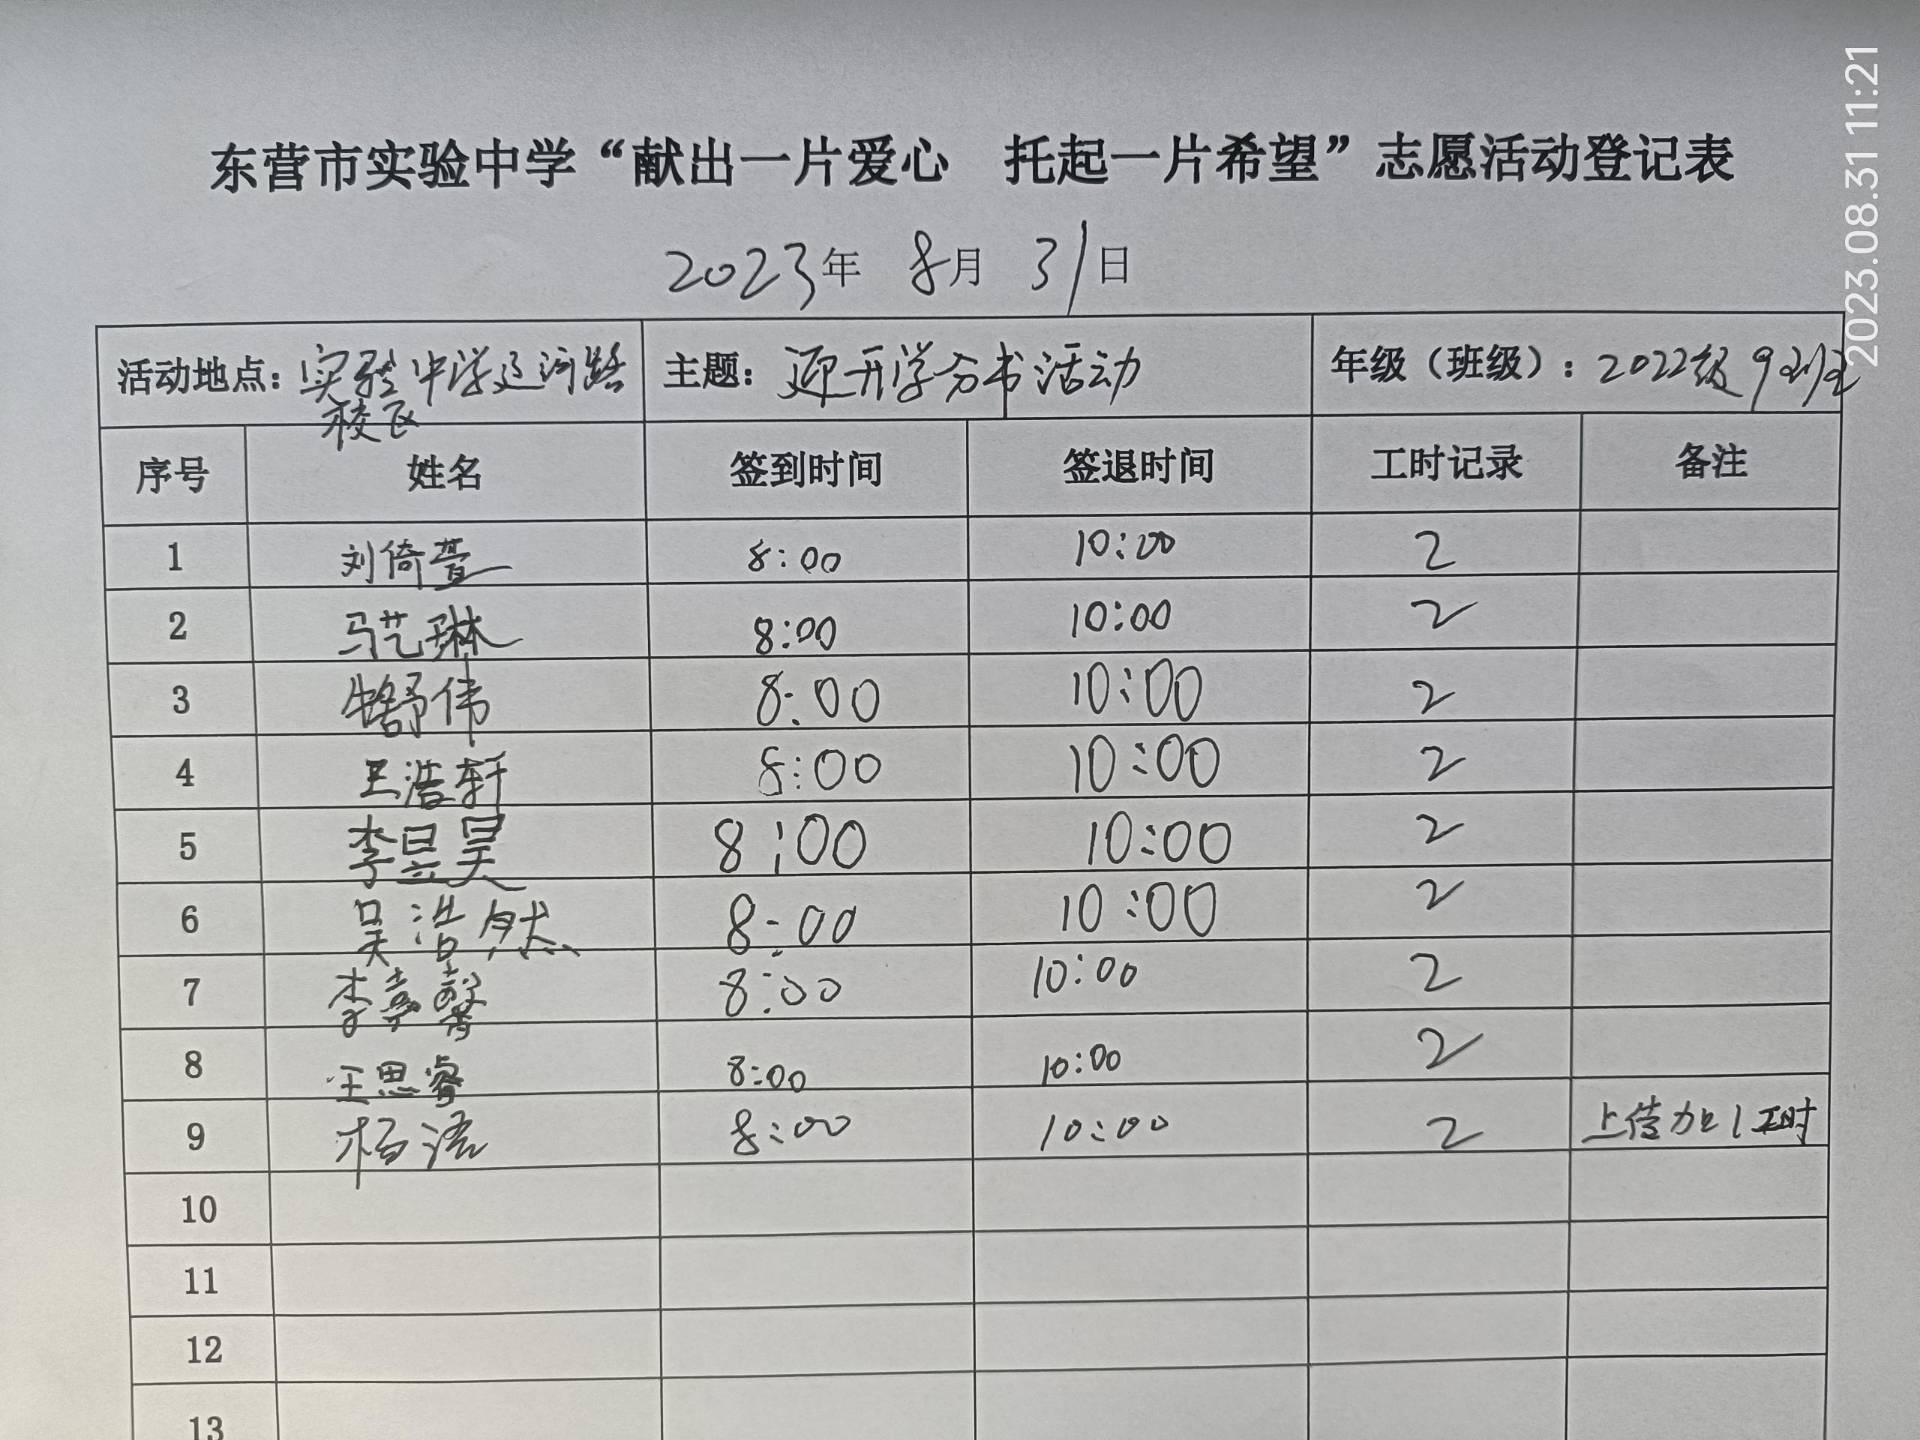 2023.08.31 11:21
东营市实验中学“献出一片爱心 托起一片希望”志愿活动登记表
2023年 8月 31日
活动地点：实验中学辽河路校区 主题：迎开学分书活动 年级（班级）：2022级9班
序号 姓名 签到时间 签退时间 工时记录 备注
1 刘倚萱 8:00 10:00 2
2 马艺琳 8:00 10:00 2
3 牛舒伟 8:00 10:00 2
4 王浩轩 8:00 10:00 2
5 李昱昊 8:00 10:00 2
6 吴浩然 8:00 10:00 2
7 李嘉馨 8:00 10:00 2
8 王思睿 8:00 10:00 2
9 杨语 8:00 10:00 2 上传加1工时
10
11
12
13